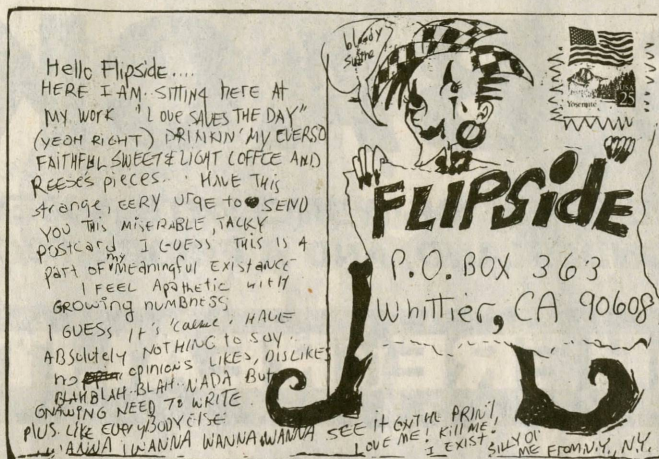 Hello Flipside....
HERE I AM. SITTING here AT
MY WORK "LOVE SAVES THE DAY"
(YEAH RIGHT) DRINKIN' MY EVERSO
FAITHFUL SWEET & LIGHT COFFEE AND
REESE'S piECES... I HAVE THIS
strange, EERY urge to SEND
YOU THIS MISERABLE, TACKY
POSTCARD I GUESS THIS IS A
part OF my MEANINGful EXISTANCE
I FEEL Apathetic with
GROWING NUMBNESS
I GUESS It's 'cause I HAVE
ABSOLUTELY NOTHING to SAY..
no opinions LIKES, DISLIKES
BLAHBLAH..BLAH..NADA But
GNAWING NEED To WRITE.
PLUS. LIKE EVERYBODY ELSE
I WANNA WANNA WANNA SEE it ON THE PRINT,
LOVE ME! KILL ME!
I EXIST.
SILLY Ol'
ME FROM N.Y., N.Y.
bloody
Yosemite
USA
25
FLIPSIDE
P.O. BOX 363
Whittier, CA 90608